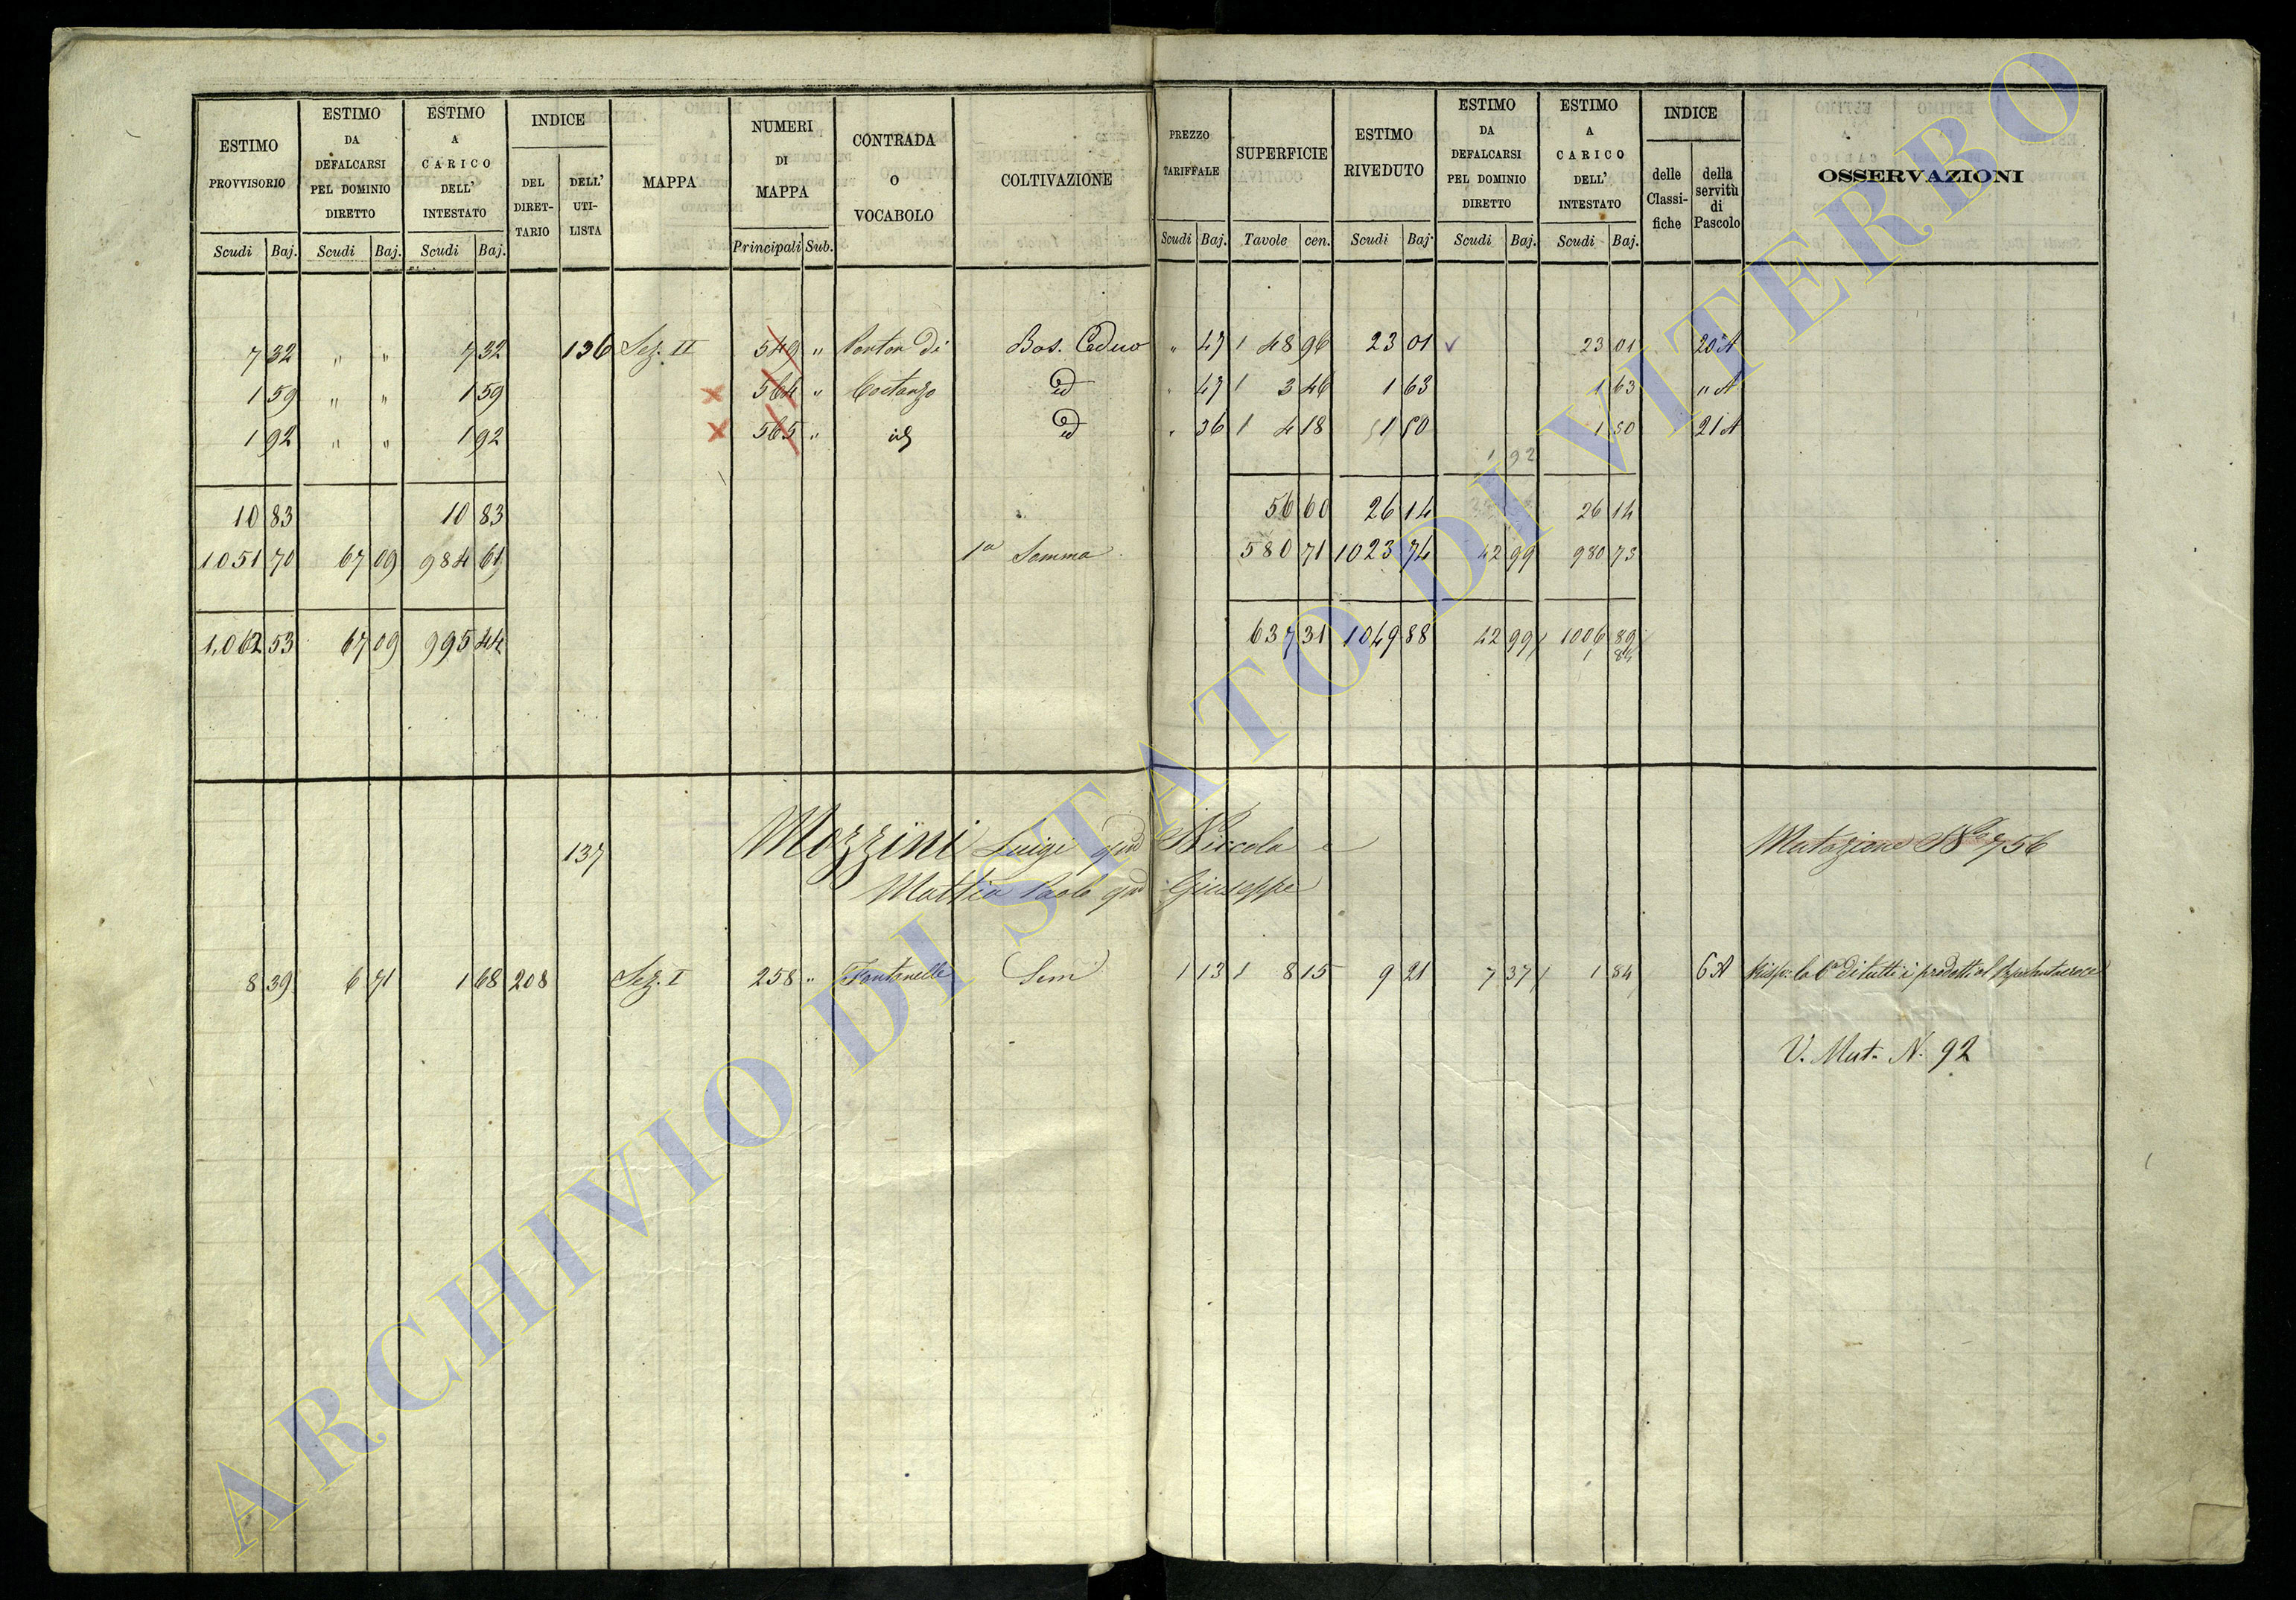 ESTIMO PROVVISORIO | ESTIMO DA DEFALCARSI PEL DOMINIO DIRETTO | ESTIMO A CARICO DELL' INTESTATO | INDICE | MAPPA | NUMERI DI MAPPA | CONTRADA O VOCABOLO | COLTIVAZIONE | PREZZO TARIFFALE | SUPERFICIE | ESTIMO RIVEDUTO | ESTIMO DA DEFALCARSI PEL DOMINIO DIRETTO | ESTIMO A CARICO DELL' INTESTATO | INDICE | OSSERVAZIONI
DEL DIRET- TARIO | DELL' UTI- LISTA | delle Classi- fiche | della servitù di Pascolo
Scudi | Baj. | Scudi | Baj. | Scudi | Baj. | Principali | Sub. | Scudi | Baj. | Tavole | cen. | Scudi | Baj. | Scudi | Baj. | Scudi | Baj.
7 32 " " 7 32 136 Sez. II 549 " Ponton di Bos. Ceduo " 47 1 48 96 23 01 23 01 20 A
1 59 " " 1 59 564 " Costanzo id " 47 1 3 46 1 63 1 63 " A
1 92 " " 1 92 565 " id id " 36 1 4 18 1 50 1 50 21 A
1 92
10 83 10 83 56 60 26 14 26 14
1051 70 67 09 984 61 1a Somma 580 71 1023 74 42 99 980 75
1,062 53 67 09 995 44 637 31 1049 88 42 99 1006 89
1 84
137 Mozzini Luigi qm Niccola e Mutazione No 756
Mattia Paolo qm Giuseppe
8 39 6 71 1 68 208 Sez. I 258 " Fontanelle Sem 1 13 1 8 15 9 21 7 37 1 84 6 A Risp: la 6a di tutti i prodotti al
V. Mut. N. 92
ARCHIVIO DI STATO DI VITERBO